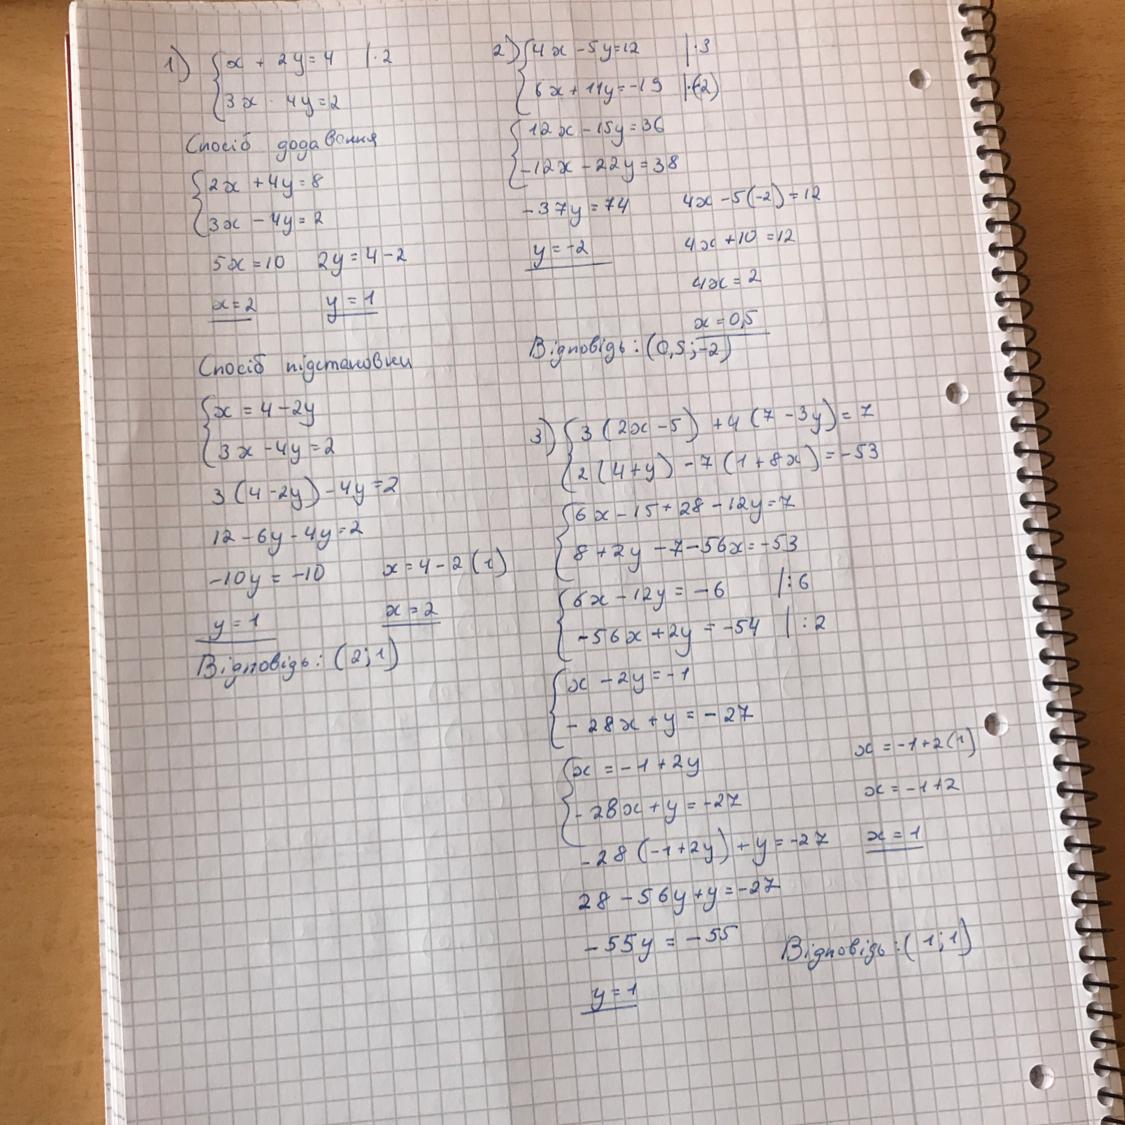 1) { x + 2y = 4 | · 2
3x - 4y = 2
Спосіб додавання
{ 2x + 4y = 8
3x - 4y = 2
5x = 10 2y = 4 - 2
x = 2 y = 1
Спосіб підстановки
{ x = 4 - 2y
3x - 4y = 2
3 (4 - 2y) - 4y = 2
12 - 6y - 4y = 2
-10y = -10 x = 4 - 2 (1)
y = 1 x = 2
Відповідь: (2; 1)
2) { 4x - 5y = 12 | · 3
6x + 11y = -19 | · (-2)
{ 12x - 15y = 36
-12x - 22y = 38
-37y = 74 4x - 5(-2) = 12
y = -2 4x + 10 = 12
4x = 2
x = 0,5
Відповідь: (0,5; -2)
3) { 3 (2x - 5) + 4 (7 - 3y) = 7
2 (4 + y) - 7 (1 + 8x) = -53
{ 6x - 15 + 28 - 12y = 7
8 + 2y - 7 - 56x = -53
{ 6x - 12y = -6 | : 6
-56x + 2y = -54 | : 2
{ x - 2y = -1
-28x + y = -27
{ x = -1 + 2y x = -1 + 2(1)
-28x + y = -27 x = -1 + 2
-28 (-1 + 2y) + y = -27 x = 1
28 - 56y + y = -27
-55y = -55 Відповідь: (1; 1)
y = 1